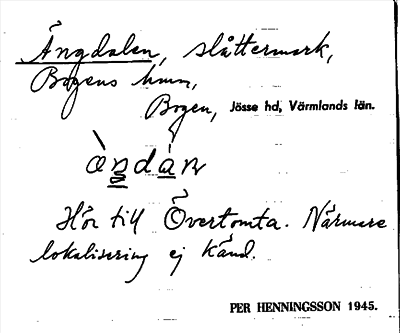 Ängdalen, slåttermark,
Bogens hmn,
Bogen, Jösse hd, Värmlands län.
Hör till Övertomta. Närmare
lokalisering ej känd.
PER HENNINGSSON 1945.